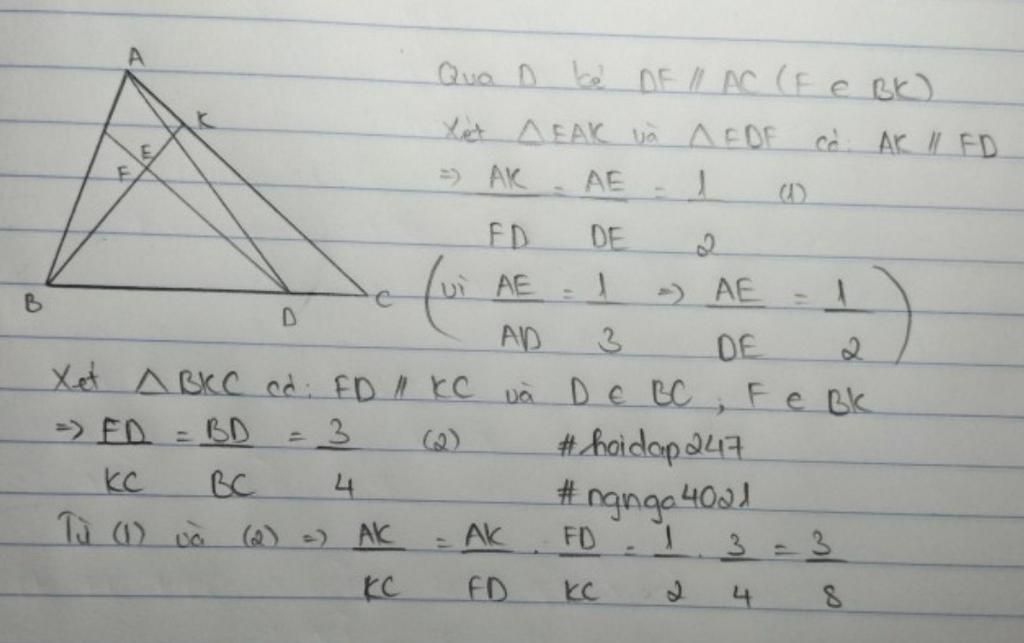 A
K
E
F
B
D
C
Qua D kẻ DF // AC (F ∈ BK)
Xét △EAK và △EDF có: AK // FD
=> AK/FD = AE/DE = 1/2 (1)
(vì AE/AD = 1/3 => AE/DE = 1/2)
Xét △BKC có: FD // KC và D ∈ BC, F ∈ BK
=> FD/KC = BD/BC = 3/4 (2)
#hoidap247
#ngnga4021
Từ (1) và (2) => AK/KC = AK/FD . FD/KC = 1/2 . 3/4 = 3/8